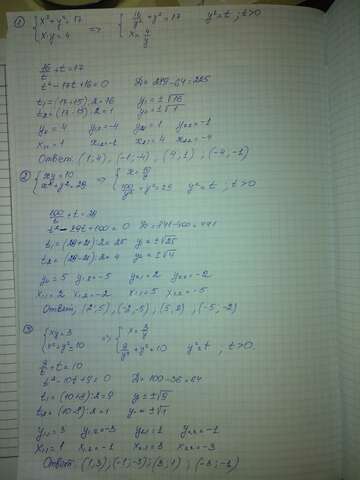 1) { x²+y²=17 => { 16/y² + y² = 17 y²=t ; t>0
x·y=4 x = 4/y
16/t + t = 17
t² - 17t + 16 = 0 D = 289-64=225
t₁ = (17+15):2 = 16 y₁ = ±√16
t₂ = (17-15):2 = 1 y₂ = ±√1
y₁,₁ = 4 y₁,₂ = -4 y₂,₁ = 1 y₂,₂ = -1
x₁,₁ = 1 x₁,₂ = -1 x₂,₁ = 4 x₂,₂ = -4
Ответ: (1; 4), (-1; -4), (4; 1), (-4; -1)
2) { xy=10 => { x = 10/y
x²+y²=29 100/y² + y² = 29 y²=t, t>0
100/t + t = 29
t² - 29t + 100 = 0 D = 841-400=441
t₁ = (29+21):2 = 25 y = ±√25
t₂ = (29-21):2 = 4 y = ±√4
y₁,₁ = 5 y₁,₂ = -5 y₂,₁ = 2 y₂,₂ = -2
x₁,₁ = 2 x₁,₂ = -2 x₂,₁ = 5 x₂,₂ = -5
Ответ: (2; 5), (-2; -5), (5; 2), (-5; -2)
3) { xy=3 => { x = 3/y
x²+y²=10 9/y² + y² = 10 y²=t, t>0.
9/t + t = 10
t² - 10t + 9 = 0 D = 100-36=64
t₁ = (10+8):2 = 9 y = ±√9
t₂ = (10-8):2 = 1 y = ±√1
y₁,₁ = 3 y₁,₂ = -3 y₂,₁ = 1 y₂,₂ = -1
x₁,₁ = 1 x₁,₂ = -1 x₂,₁ = 3 x₂,₂ = -3
Ответ: (1; 3), (-1; -3), (3; 1), (-3; -1)